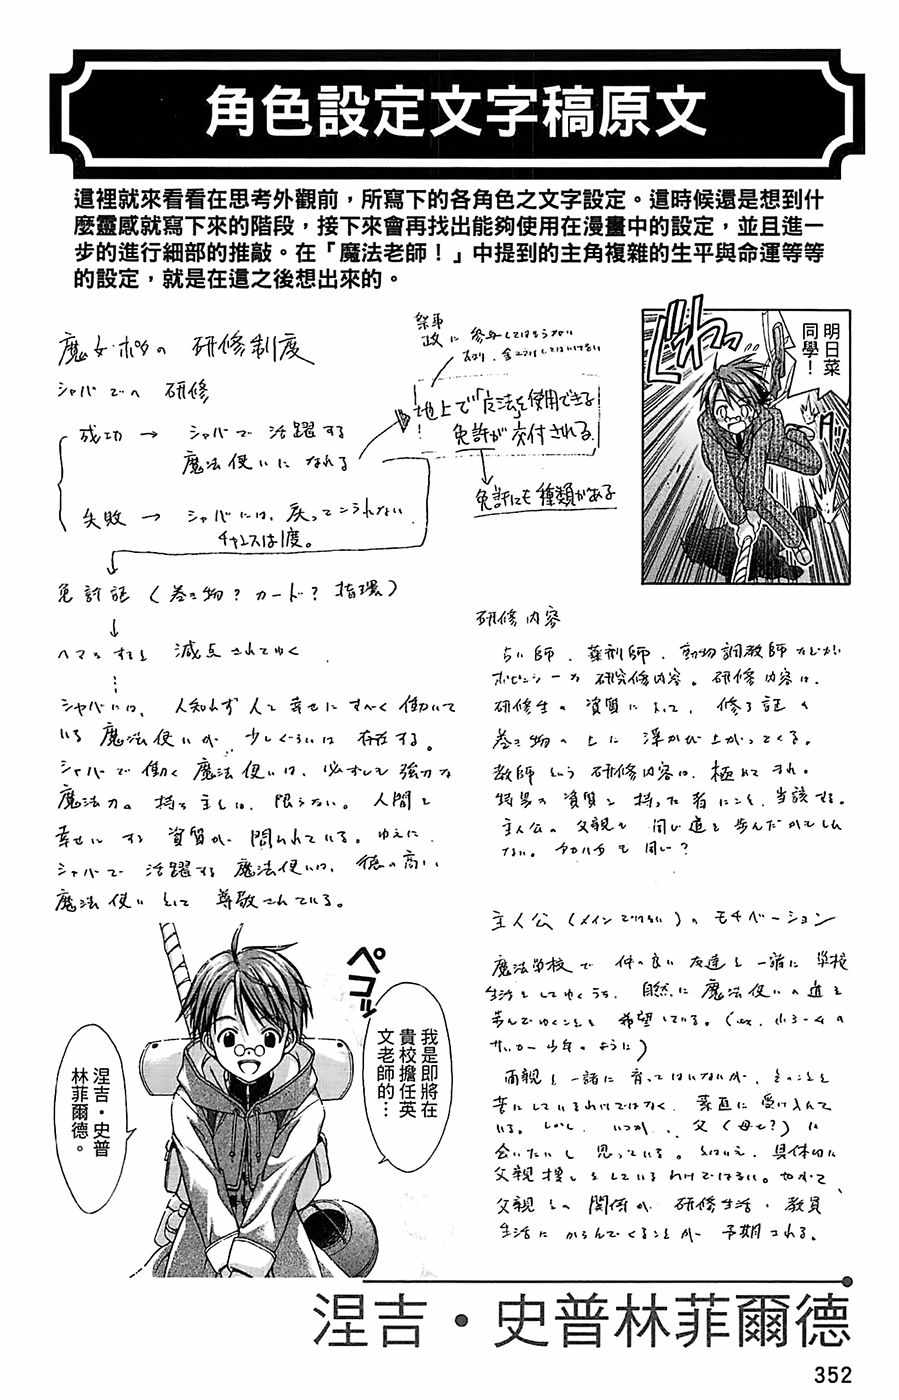 角色設定文字稿原文
這裡就來看看在思考外觀前，所寫下的各角色之文字設定。這時候還是想到什
麼靈感就寫下來的階段，接下來會再找出能夠使用在漫畫中的設定，並且進一
步的進行細部的推敲。在「魔法老師！」中提到的主角複雜的生平與命運等等
的設定，就是在這之後想出來的。
研修制度
シャバでの 研修
成功 → シャバで 活躍する
魔法使いに なれる
失敗 → シャバには、戻ってこられない
チャンスは1度。
祭事
政に 参加してはならない
地上で「魔法」を使用できる
免許が 交付される
免許にも種類がある
明日菜
同學！
免許証（巻き物？カード？指環）
ヘマをすると 減点されてゆく
シャバには、人知れず 人を 幸せにすべく 働いて
いる 魔法使いが 少しぐらいは 存在する。
シャバで 働く 魔法使いは、必ずしも 強力な
魔法力の 持ち主とは 限らない。人間を
幸せに する 資質が 問われている。ゆえに
シャバで 活躍する 魔法使いは、徳の高い
魔法使いとして 尊敬されている。
研修内容
占い師、薬剤師、動物調教師などが
研修内容は、
研修生の 資質によって、修了証の
巻き物の上に 浮かび上がってくる。
教師という 研修内容は、極めてまれ。
特異な 資質を 持った者にこそ、当該する。
主人公の 父親も 同じ道を歩んだかもしれ
ない。 も同じ？
主人公（メインではない）の モチベーション
魔法学校で 仲の良い 友達と一緒に 学校
生活をしてゆくうち、自然に 魔法使いの道を
歩んでゆくことを 希望している。
サッカー少年のように）
両親と一緒に 育ってはいないが、そのことを
苦にしているわけではなく、素直に受け入れて
いる。しかし、いつか、父（母も？）に
会いたいと 思っている。とはいえ、具体的に
父親捜しをしているわけではない。やがて
父親との 関係が 研修生活・教員
生活に からんでくることが 予期される。
ペコッ
我是即將在
貴校擔任英
文老師的…
涅吉・史普
林菲爾德。
涅吉・史普林菲爾德
352